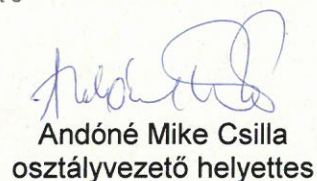 Andóné Mike Csilla
osztályvezető helyettes